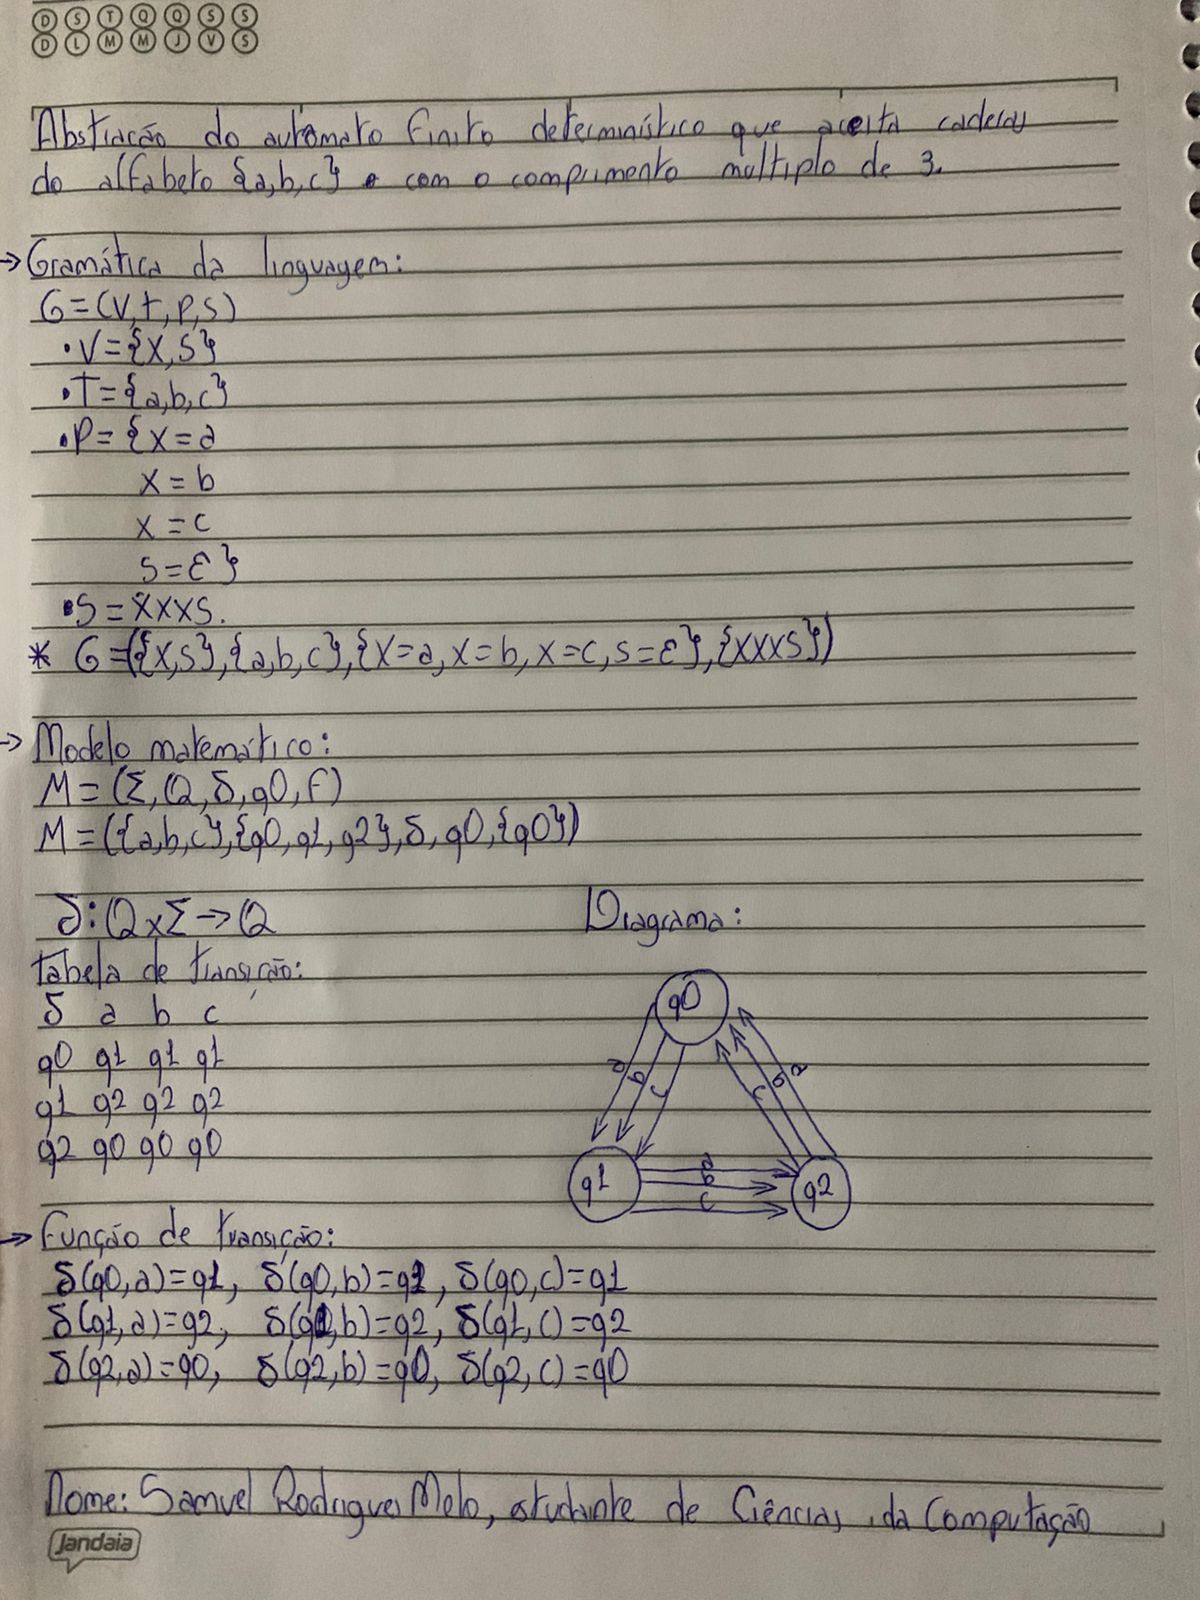 D S T Q Q S S
D L M M J V S
Abstração do autômato finito determinístico que aceita cadeias
do alfabeto {a,b,c} e com o comprimento múltiplo de 3.
→ Gramática da linguagem:
G=(V,T,P,S)
•V={X,S}
•T={a,b,c}
•P={X=a
X=b
X=c
S=ε}
•S=XXXS.
* G=({X,S},{a,b,c},{X=a,X=b,X=c,S=ε},{XXXS})
→ Modelo matemático:
M=(Σ,Q,δ,q0,F)
M=({a,b,c},{q0,q1,q2},δ,q0,{q0})
δ:QxΣ→Q
Diagrama:
Tabela de transição:
δ a b c
q0 q1 q1 q1
q1 q2 q2 q2
q2 q0 q0 q0
q0
a b c
c b a
q1
a
b
c
q2
→ Função de transição:
δ(q0,a)=q1, δ(q0,b)=q1, δ(q0,c)=q1
δ(q1,a)=q2, δ(q1,b)=q2, δ(q1,c)=q2
δ(q2,a)=q0, δ(q2,b)=q0, δ(q2,c)=q0
Nome: Samuel Rodrigues Melo, estudante de Ciências da Computação
Jandaia